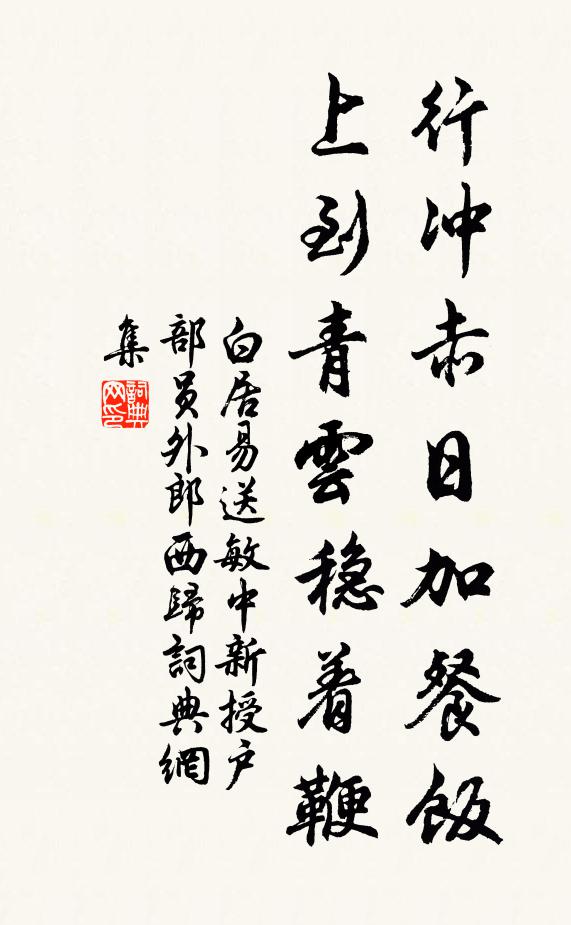 行冲赤日加餐飯
上到青雲稳着鞭
白居易送敏中新授户
部员外郎西歸詞典網
集
詞典
网印